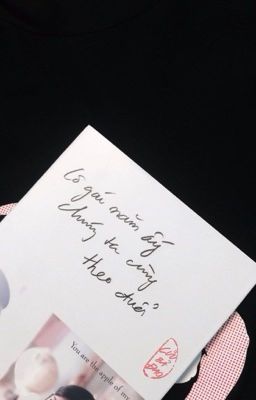 Cô gái năm ấy
chúng ta cùng
theo đuổi
You are the apple of my